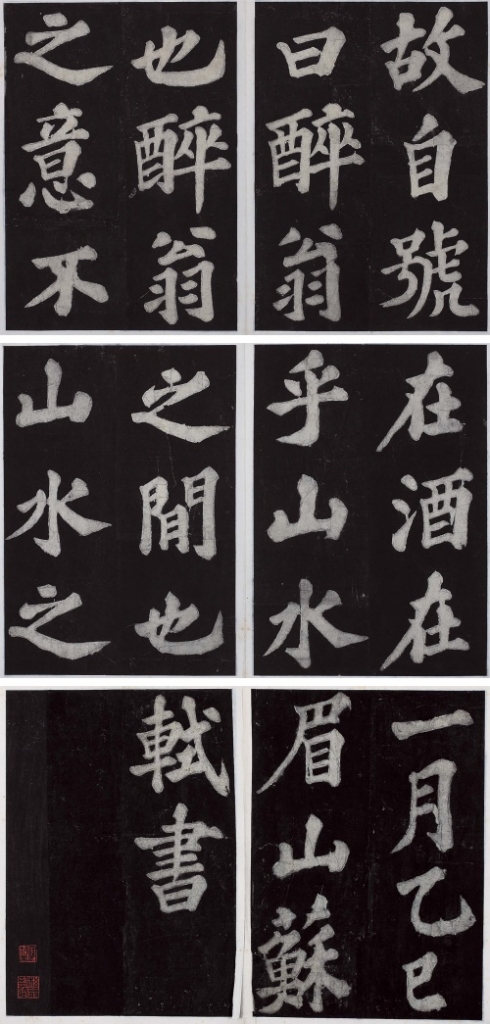 故自號
曰醉翁
也醉翁
之意不
在酒在
乎山水
之閒也
山水之
一月乙巳
眉山蘇
軾書